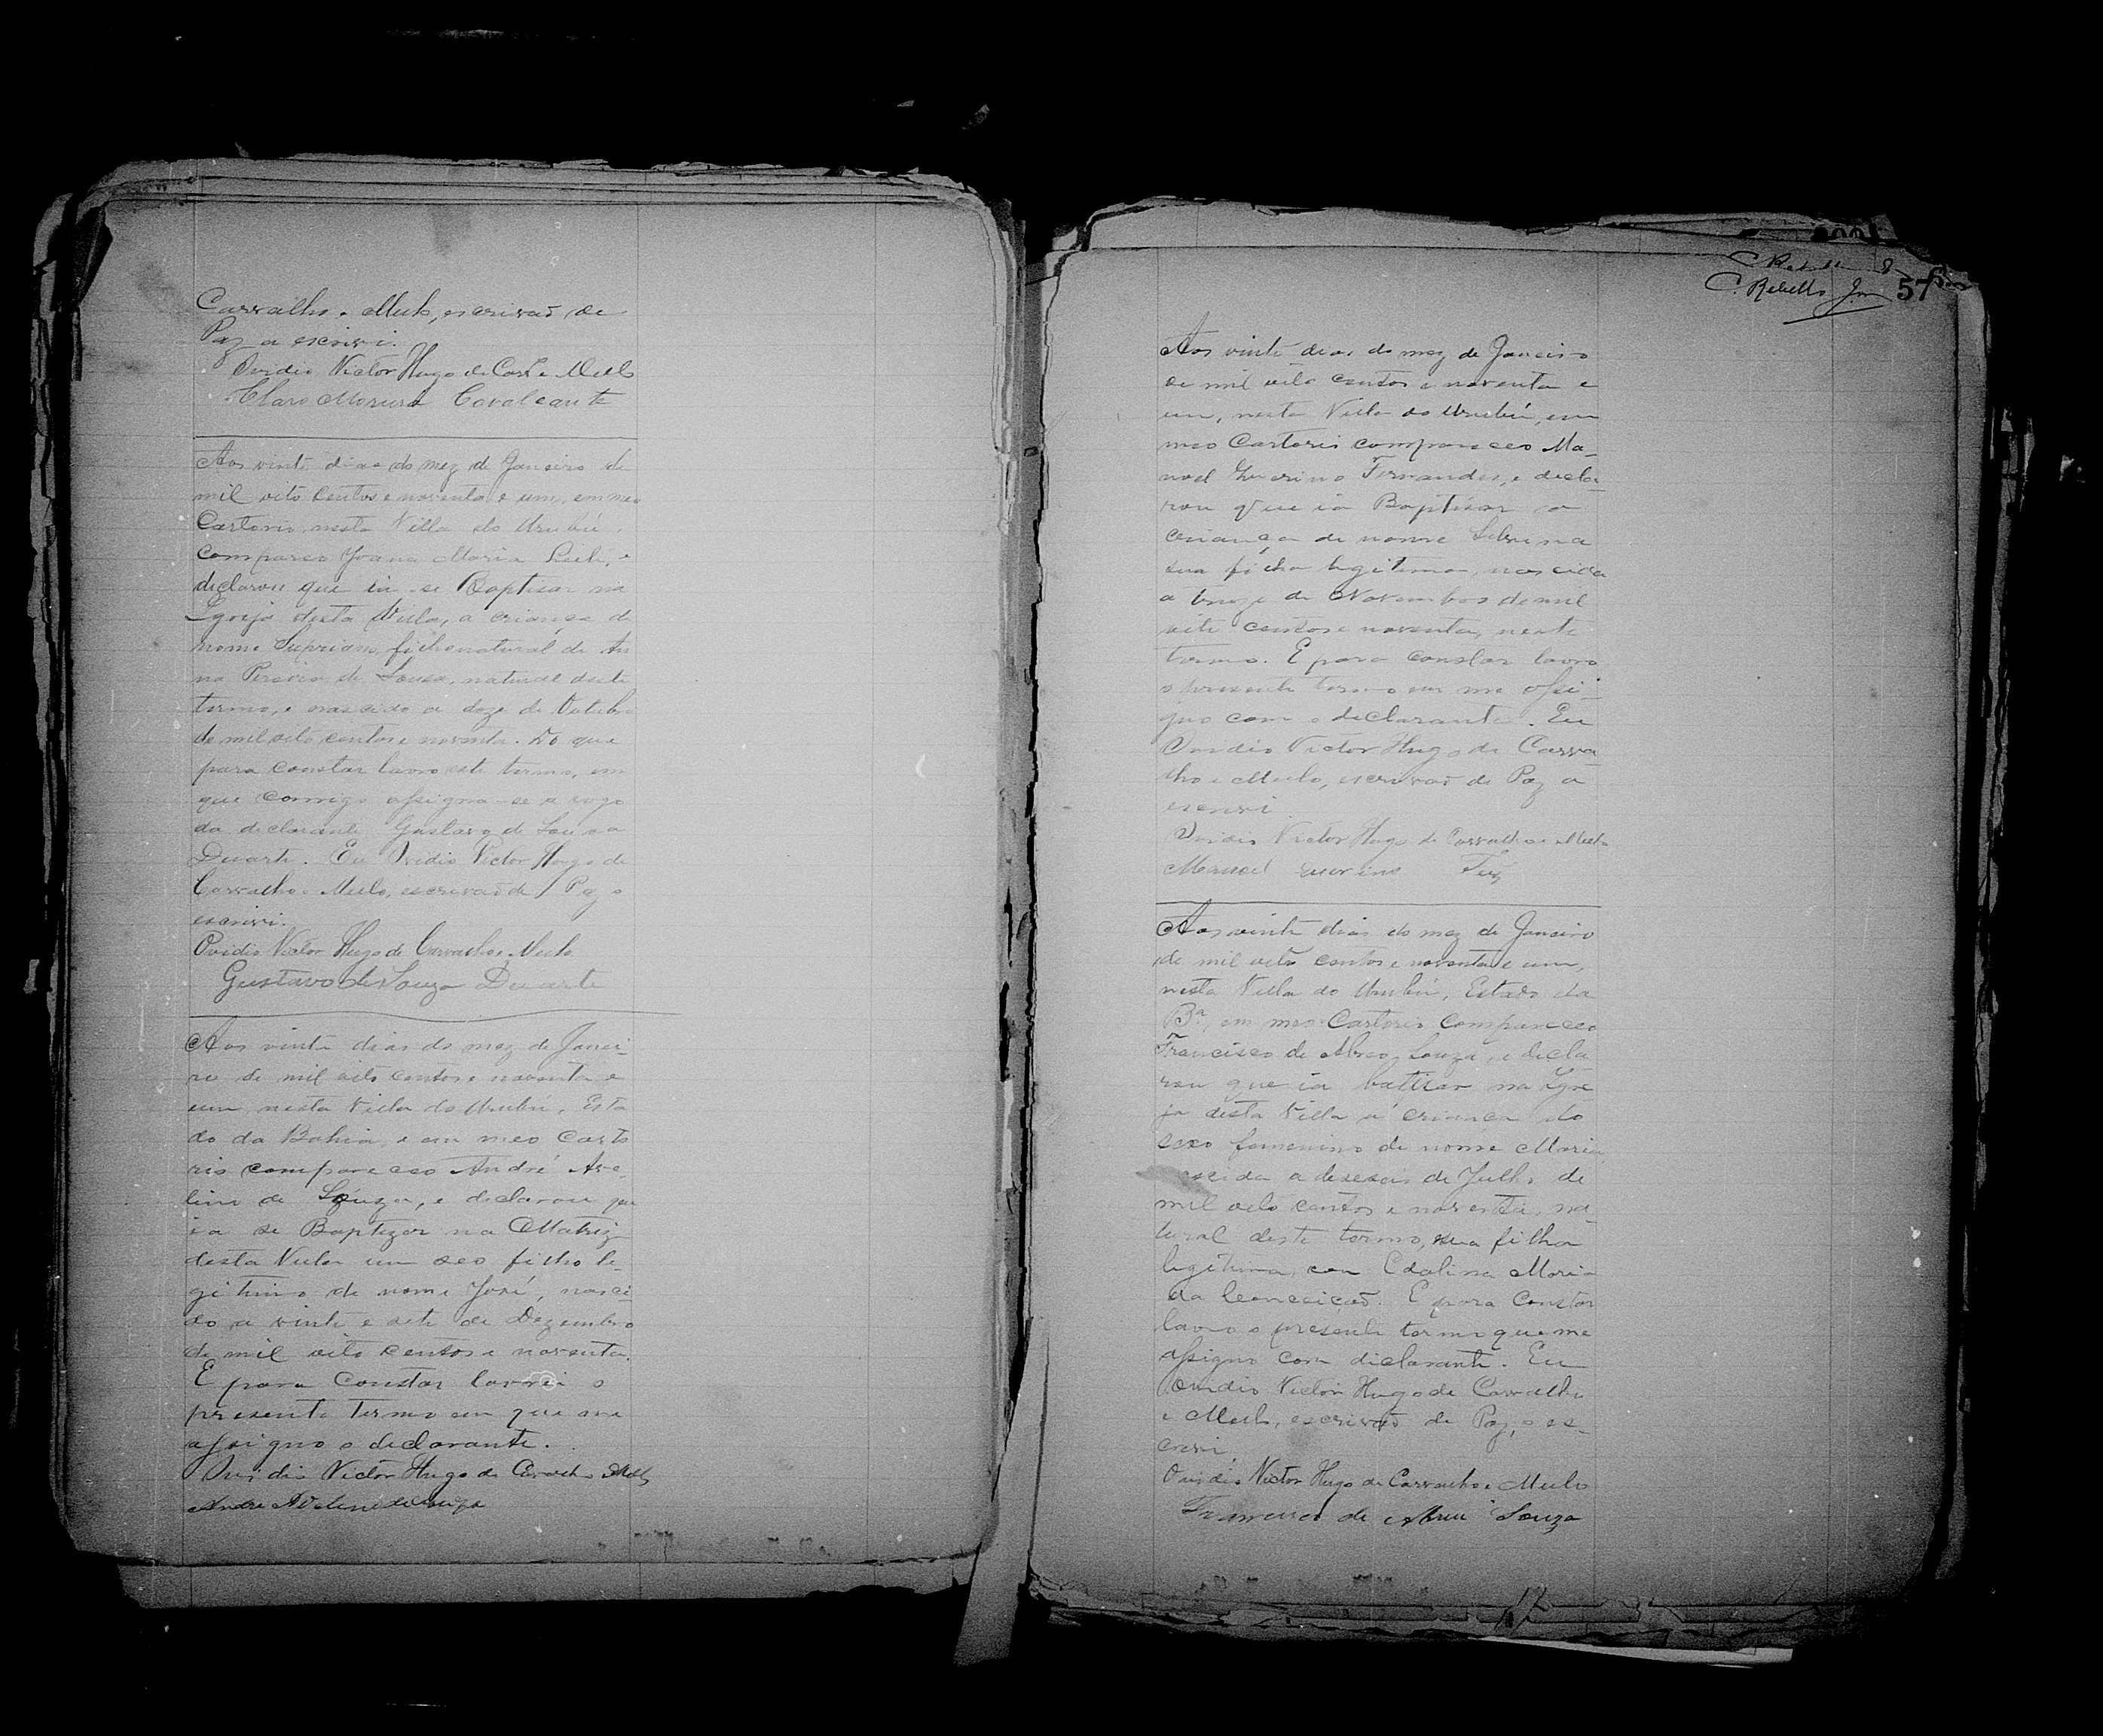 Carvalho e Mello, escrivaõ de
Paz a escrivi.
Ovidio Victor Hugo de Carv.º e Mello
Claro Moreira Cavalcante
Aos vinte dias do mez de Janeiro de
mil oito centos e noventa e um, em meo
Cartorio nesta Villa do Urubú,
compareo Joana Maria, e
declarou que ia se Baptisar na
Igreja desta Villa, a criança de
nome Supriano, filho natural de An
na Pereira de Sousa, natural deste
termo, e nascido a doze de Outubro
de mil oito centos e noventa. Do que
para constar lavro este termo, em
que comigo assigna-se a rogo
da declarante Gustavo de Souza
Duarte. Eu Ovidio Victor Hugo de
Carvalho e Mello, escrivaõ de Paz o
escrivi.
Ovidio Victor Hugo de Carvalho e Mello
Gustavo de Souza Duarte
Aos vinte dias do mez de Janei-
ro de mil oito centos e noventa e
um, nesta Villa do Urubú, Esta
do da Bahia, e em meo Carto
rio compareceo André Ave-
lino de Souza, e declarou que
ia se Baptizar na Matriz
desta Villa um seo filho le-
gitimo de nome José, nasci-
do a vinte e sete de Dezembro
de mil oito centos e noventa.
E para constar lavrei o
presente termo em que me
assigno o declarante.
Ovidio Victor Hugo de Carvalho e Mello
Andre Avelino de Souza
C. Rebello Jor 57
Aos vinte dias do mez de Janeiro
de mil oito centos e noventa e
um, nesta Villa do Urubú, em
meo Cartorio compareceo Ma-
noel Guerino Fernandes, e decla-
rou que ia Baptisar a
criança de nome
sua filha legitima, nascida
a onze de Novembro de mil
oito centos e noventa, neste
termo. E para constar lavro
o presente termo em me assi-
gno com o declarante. Eu
Ovidio Victor Hugo de Carva
lho e Mello, escrivaõ de Paz a
escrivi.
Ovidio Victor Hugo de Carvalho e Mello
Manoel Guerino Fez
Aos vinte dias do mez de Janeiro
de mil oito centos e noventa e um,
nesta Villa do Urubú, Estado da
Bª, em meo Cartorio compareceo
Francisco de Abreo Souza, e decla
rou que ia batisar na Igre
ja desta Villa a criança do
sexo femenino de nome Maria,
nascida a deseseis de Julho de
mil oito centos e noventa, na-
tural deste termo, sua filha
legitima, com Edalina Maria
da Conceiçaõ. E para constar
lavro o presente termo que me
assigno com declarante. Eu
Ovidio Victor Hugo de Carvalho
e Mello, escrivaõ de Paz, o es-
crivi
Ovidio Victor Hugo de Carvalho e Mello
Francisco de Abreu Souza